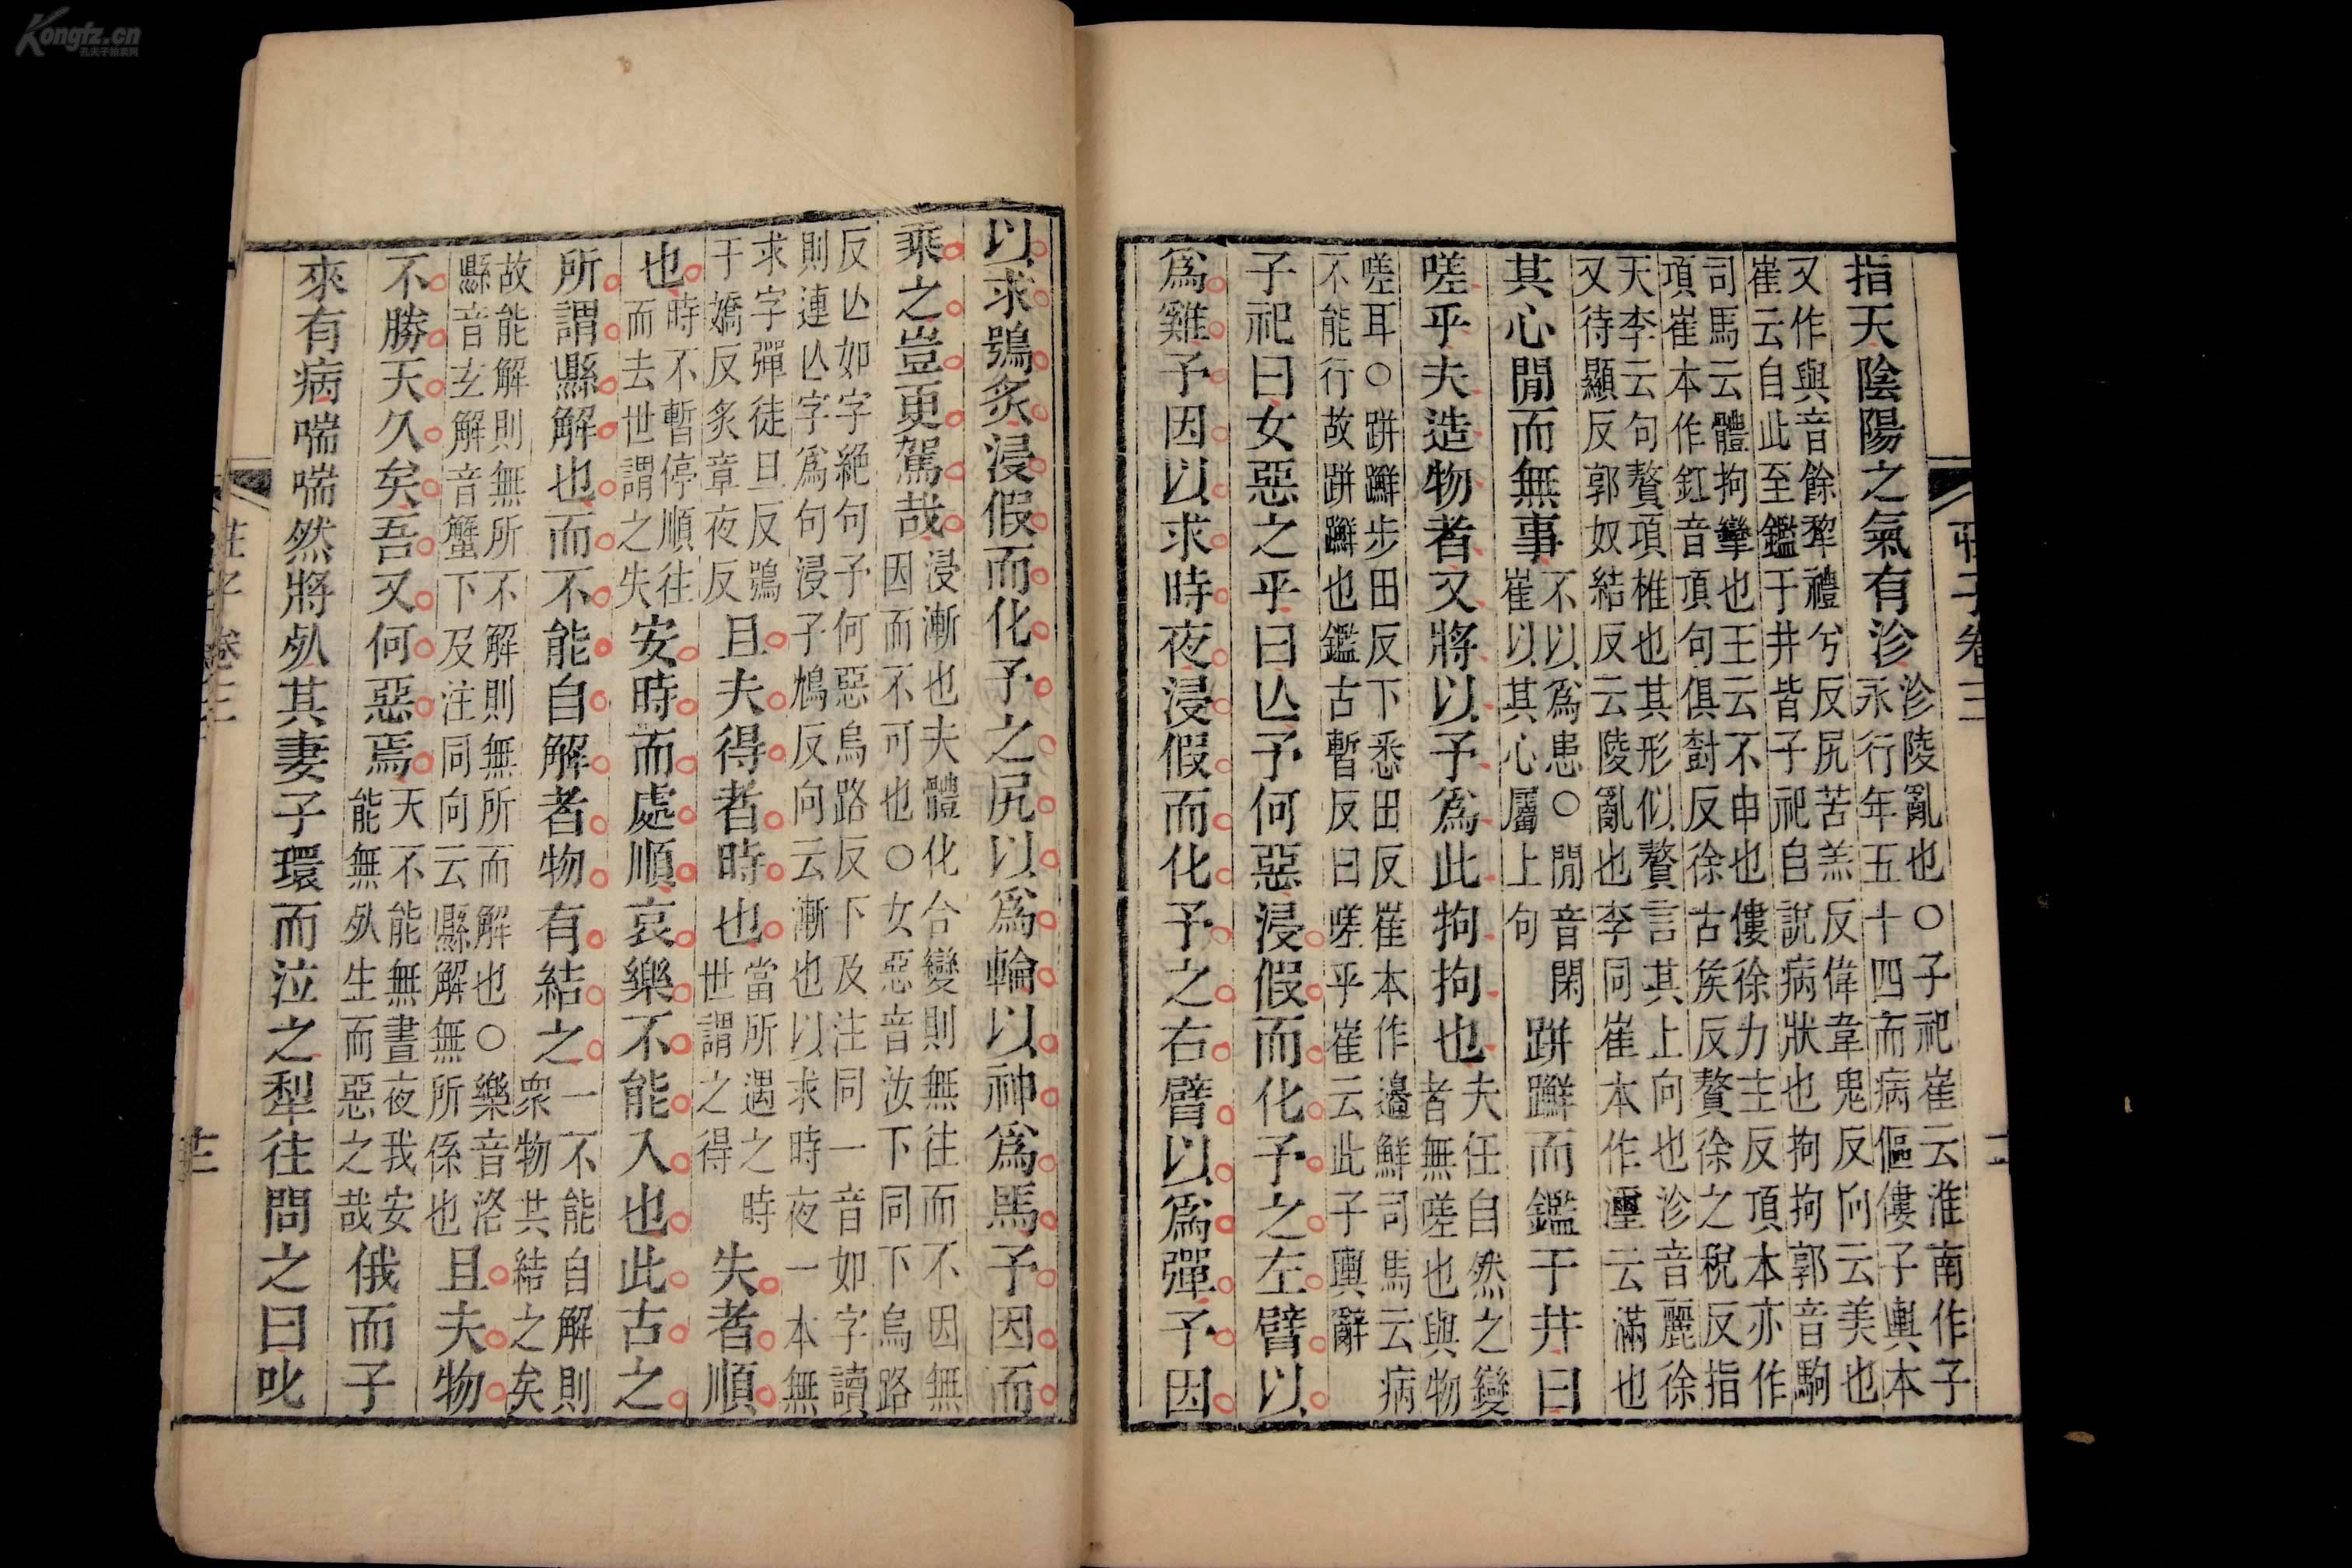 莊子卷三
指天陰陽之氣有沴沴陵亂也○子祀崔云淮南作子永行年五十四而病傴僂子輿本
又作與音餘犂禮兮反尻苦羔反偉韋鬼反向云美也崔云自此至鑑于井皆子祀自說病狀也拘拘郭音駒
司馬云體拘攣也王云不申也僂徐力主反項本亦作項崔本作釭音項句俱樹反徐古矦反贅徐之稅反指
天李云句贅項椎也其形似贅言其上向也沴音麗徐又待顯反郭奴結反云陵亂也李同崔本作壐云滿也
其心閒而無事不以爲患○閒音閑崔以其心屬上句跰𨇤而鑑于井曰
嗟乎夫造物者又將以予爲此拘拘也夫任自然之變者無嗟也與物
嗟耳○跰𨇤步田反下悉田反崔本作邉鮮司馬云病不能行故跰𨇤也鑑古暫反曰嗟乎崔云此子輿辭
子祀曰女惡之乎曰亾予何惡浸假而化予之左臂以
爲雞予因以求時夜浸假而化予之右臂以爲彈予因
以求鴞炙浸假而化予之尻以爲輪以神爲馬予因而
乘之豈更駕哉浸漸也夫體化合變則無往而不因無因而不可也○女惡音汝下同下烏路
反亾如字絕句予何惡烏路反下及注同一音如字讀則連亾字爲句浸子鴆反向云漸也以求時夜一本無
求字彈徒旦反鴞于嬌反炙章夜反且夫得者時也當所遇之時世謂之得失者順
也時不暫停順往而去世謂之失安時而處順哀樂不能入也此古之
所謂縣解也而不能自解者物有結之一不能自解則衆物共結之矣
故能解則無所不解則無所而解也○樂音洛縣音玄解音蟹下及注同向云縣解無所係也且夫物
不勝天久矣吾又何惡焉天不能無晝夜我安能無𣦸生而惡之哉俄而子
來有病喘喘然將𣦸其妻子環而泣之犂往問之曰叱
莊子卷三
Kongfz.cn
孔夫子拍卖网